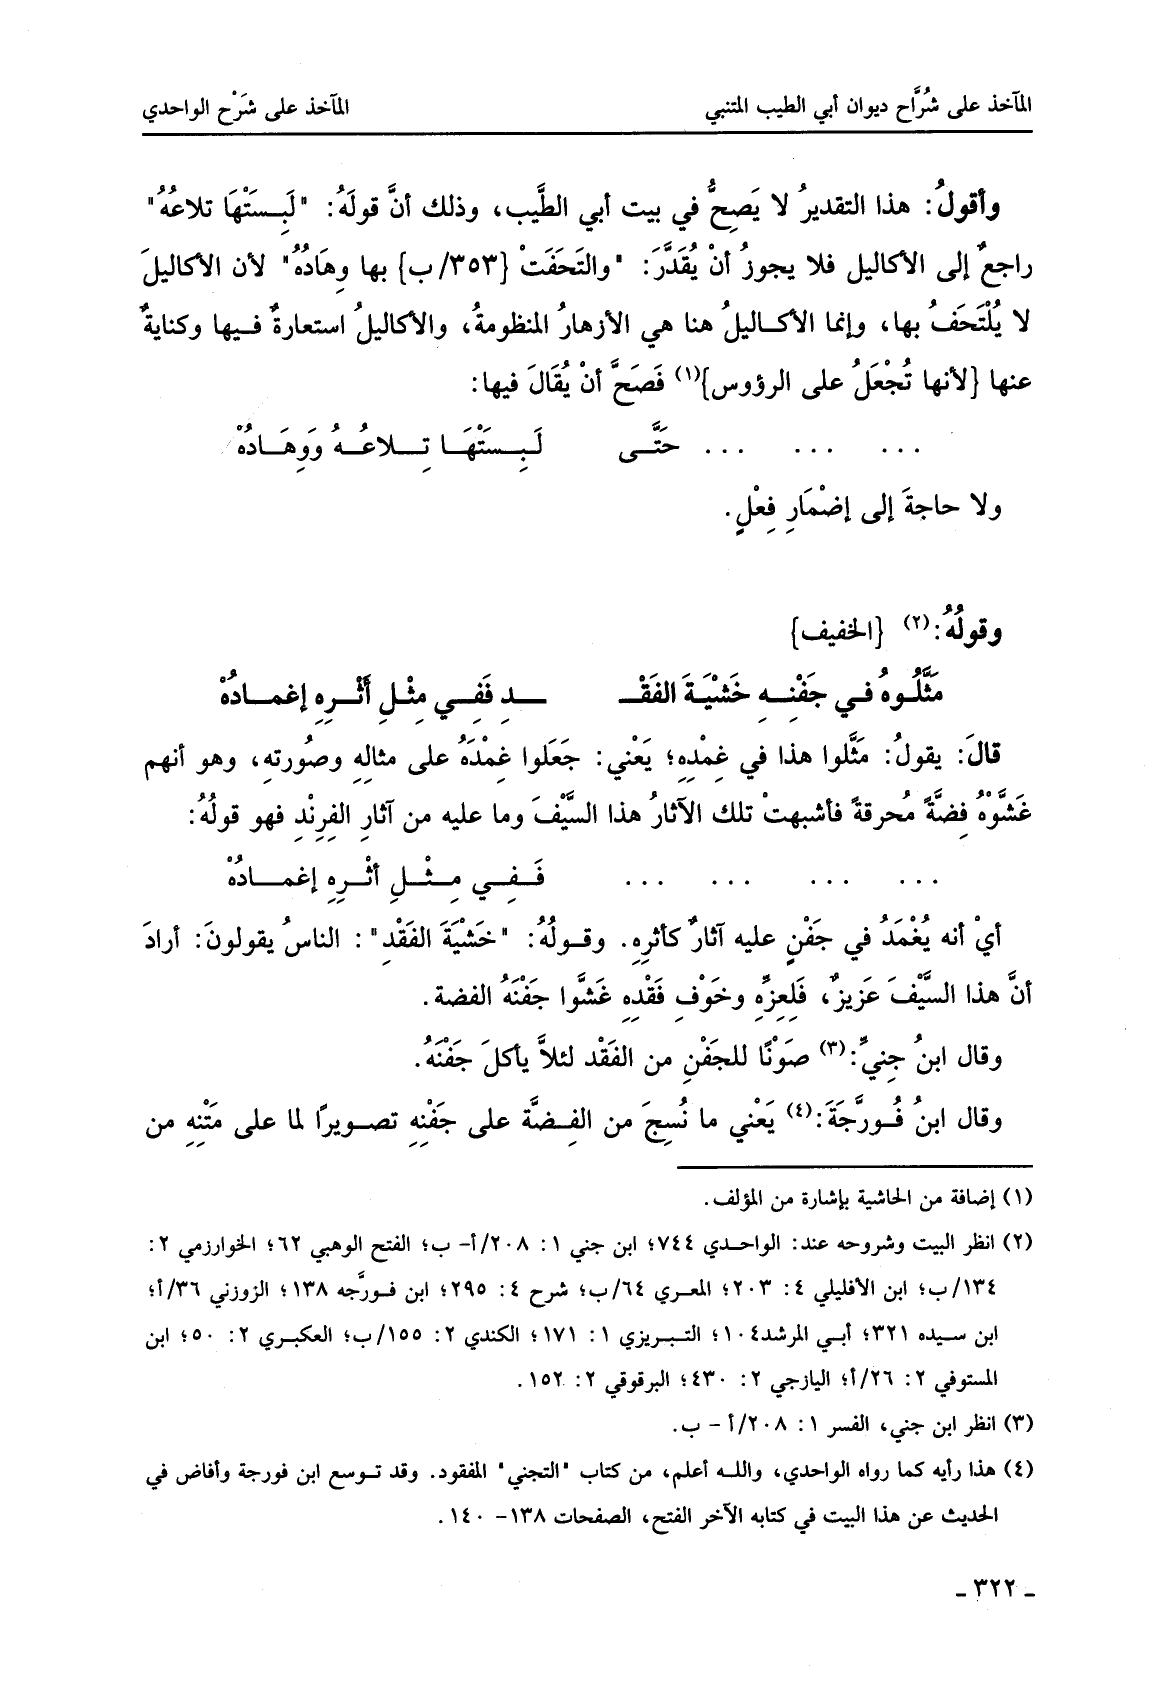 المآخذ على شُرَّاح ديوان أبي الطيب المتنبي المآخذ على شَرْح الواحدي
وأقولُ: هذا التقديرُ لا يَصِحُّ في بيت أبي الطَّيب، وذلك أنَّ قولَهُ: "لَبِسَتْهَا تلاعُهُ"
راجعٌ إلى الأكاليل فلا يجوزُ أنْ يُقَدَّرَ: "والتَحَفَتْ {٣٥٣/ ب} بها وِهَادُهُ" لأن الأكاليلَ
لا يُلْتَحَفُ بها، وإنما الأكاليلُ هنا هي الأزهارُ المنظومةُ، والأكاليلُ استعارةٌ فيها وكنايةٌ
عنها {لأنها تُجْعَلُ على الرؤوس}(١) فَصَحَّ أنْ يُقَالَ فيها:
... ... ... حَتَّى لَبِسَتْهَا تِلاعُهُ وَوِهَادُهْ
ولا حاجةَ إلى إضْمَارِ فِعْلٍ.
وقولُهُ:(٢) {الخفيف}
مَثَّلُوهُ في جَفْنِهِ خَشْيَةَ الفَقْـ ـدِ فَفِي مِثْلِ أَثْرِهِ إغمادُهْ
قالَ: يقولُ: مَثَّلوا هذا في غِمْدِهِ؛ يَعْني: جَعَلوا غِمْدَهُ على مثالِهِ وصُورتهِ، وهو أنهم
غَشَّوْهُ فِضَّةً مُحرقةً فأشبهتْ تلك الآثارُ هذا السَّيْفَ وما عليه من آثارِ الفِرِنْدِ فهو قولُهُ:
... ... ... ... فَفِي مِثْلِ أثْرِهِ إغمادُهْ
أيْ أنه يُغْمَدُ في جَفْنٍ عليه آثارٌ كأثرِهِ. وقولُهُ: "خَشْيَةَ الفَقْدِ": الناسُ يقولونَ: أرادَ
أنَّ هذا السَّيْفَ عَزيزٌ، فَلِعِزِّهِ وخَوْفِ فَقْدِهِ غَشَّوا جَفْنَهُ الفضة.
وقال ابنُ جِنيٍّ:(٣) صَوْنًا للجَفْنِ من الفَقْد لئلاَّ يأكلَ جَفْنَهُ.
وقال ابنُ فُورَّجَةَ:(٤) يَعْني ما نُسِجَ من الفِضَّة على جَفْنِهِ تصويرًا لما على مَتْنِهِ من
(١) إضافة من الحاشية بإشارة من المؤلف.
(٢) انظر البيت وشروحه عند: الواحدي ٧٤٤؛ ابن جني ١: ٢٠٨/أ- ب؛ الفتح الوهبي ٦٢؛ الخوارزمي ٢:
١٣٤/ب؛ ابن الأفليلي ٤: ٢٠٣؛ المعري ٦٤/ب؛ شرح ٤: ٢٩٥؛ ابن فورَّجه ١٣٨؛ الزوزني ٣٦/أ؛
ابن سيده ٣٢١؛ أبي المرشد١٠٤؛ التبريزي ١: ١٧١؛ الكندي ٢: ١٥٥/ب؛ العكبري ٢: ٥٠؛ ابن
المستوفي ٢: ٢٦/أ؛ اليازجي ٢: ٤٣٠؛ البرقوقي ٢: ١٥٢.
(٣) انظر ابن جني، الفسر ١: ٢٠٨/أ - ب.
(٤) هذا رأيه كما رواه الواحدي، والله أعلم، من كتاب "التجني" المفقود. وقد توسع ابن فورجة وأفاض في
الحديث عن هذا البيت في كتابه الآخر الفتح، الصفحات ١٣٨- ١٤٠.
ـ ٣٢٢ ـ